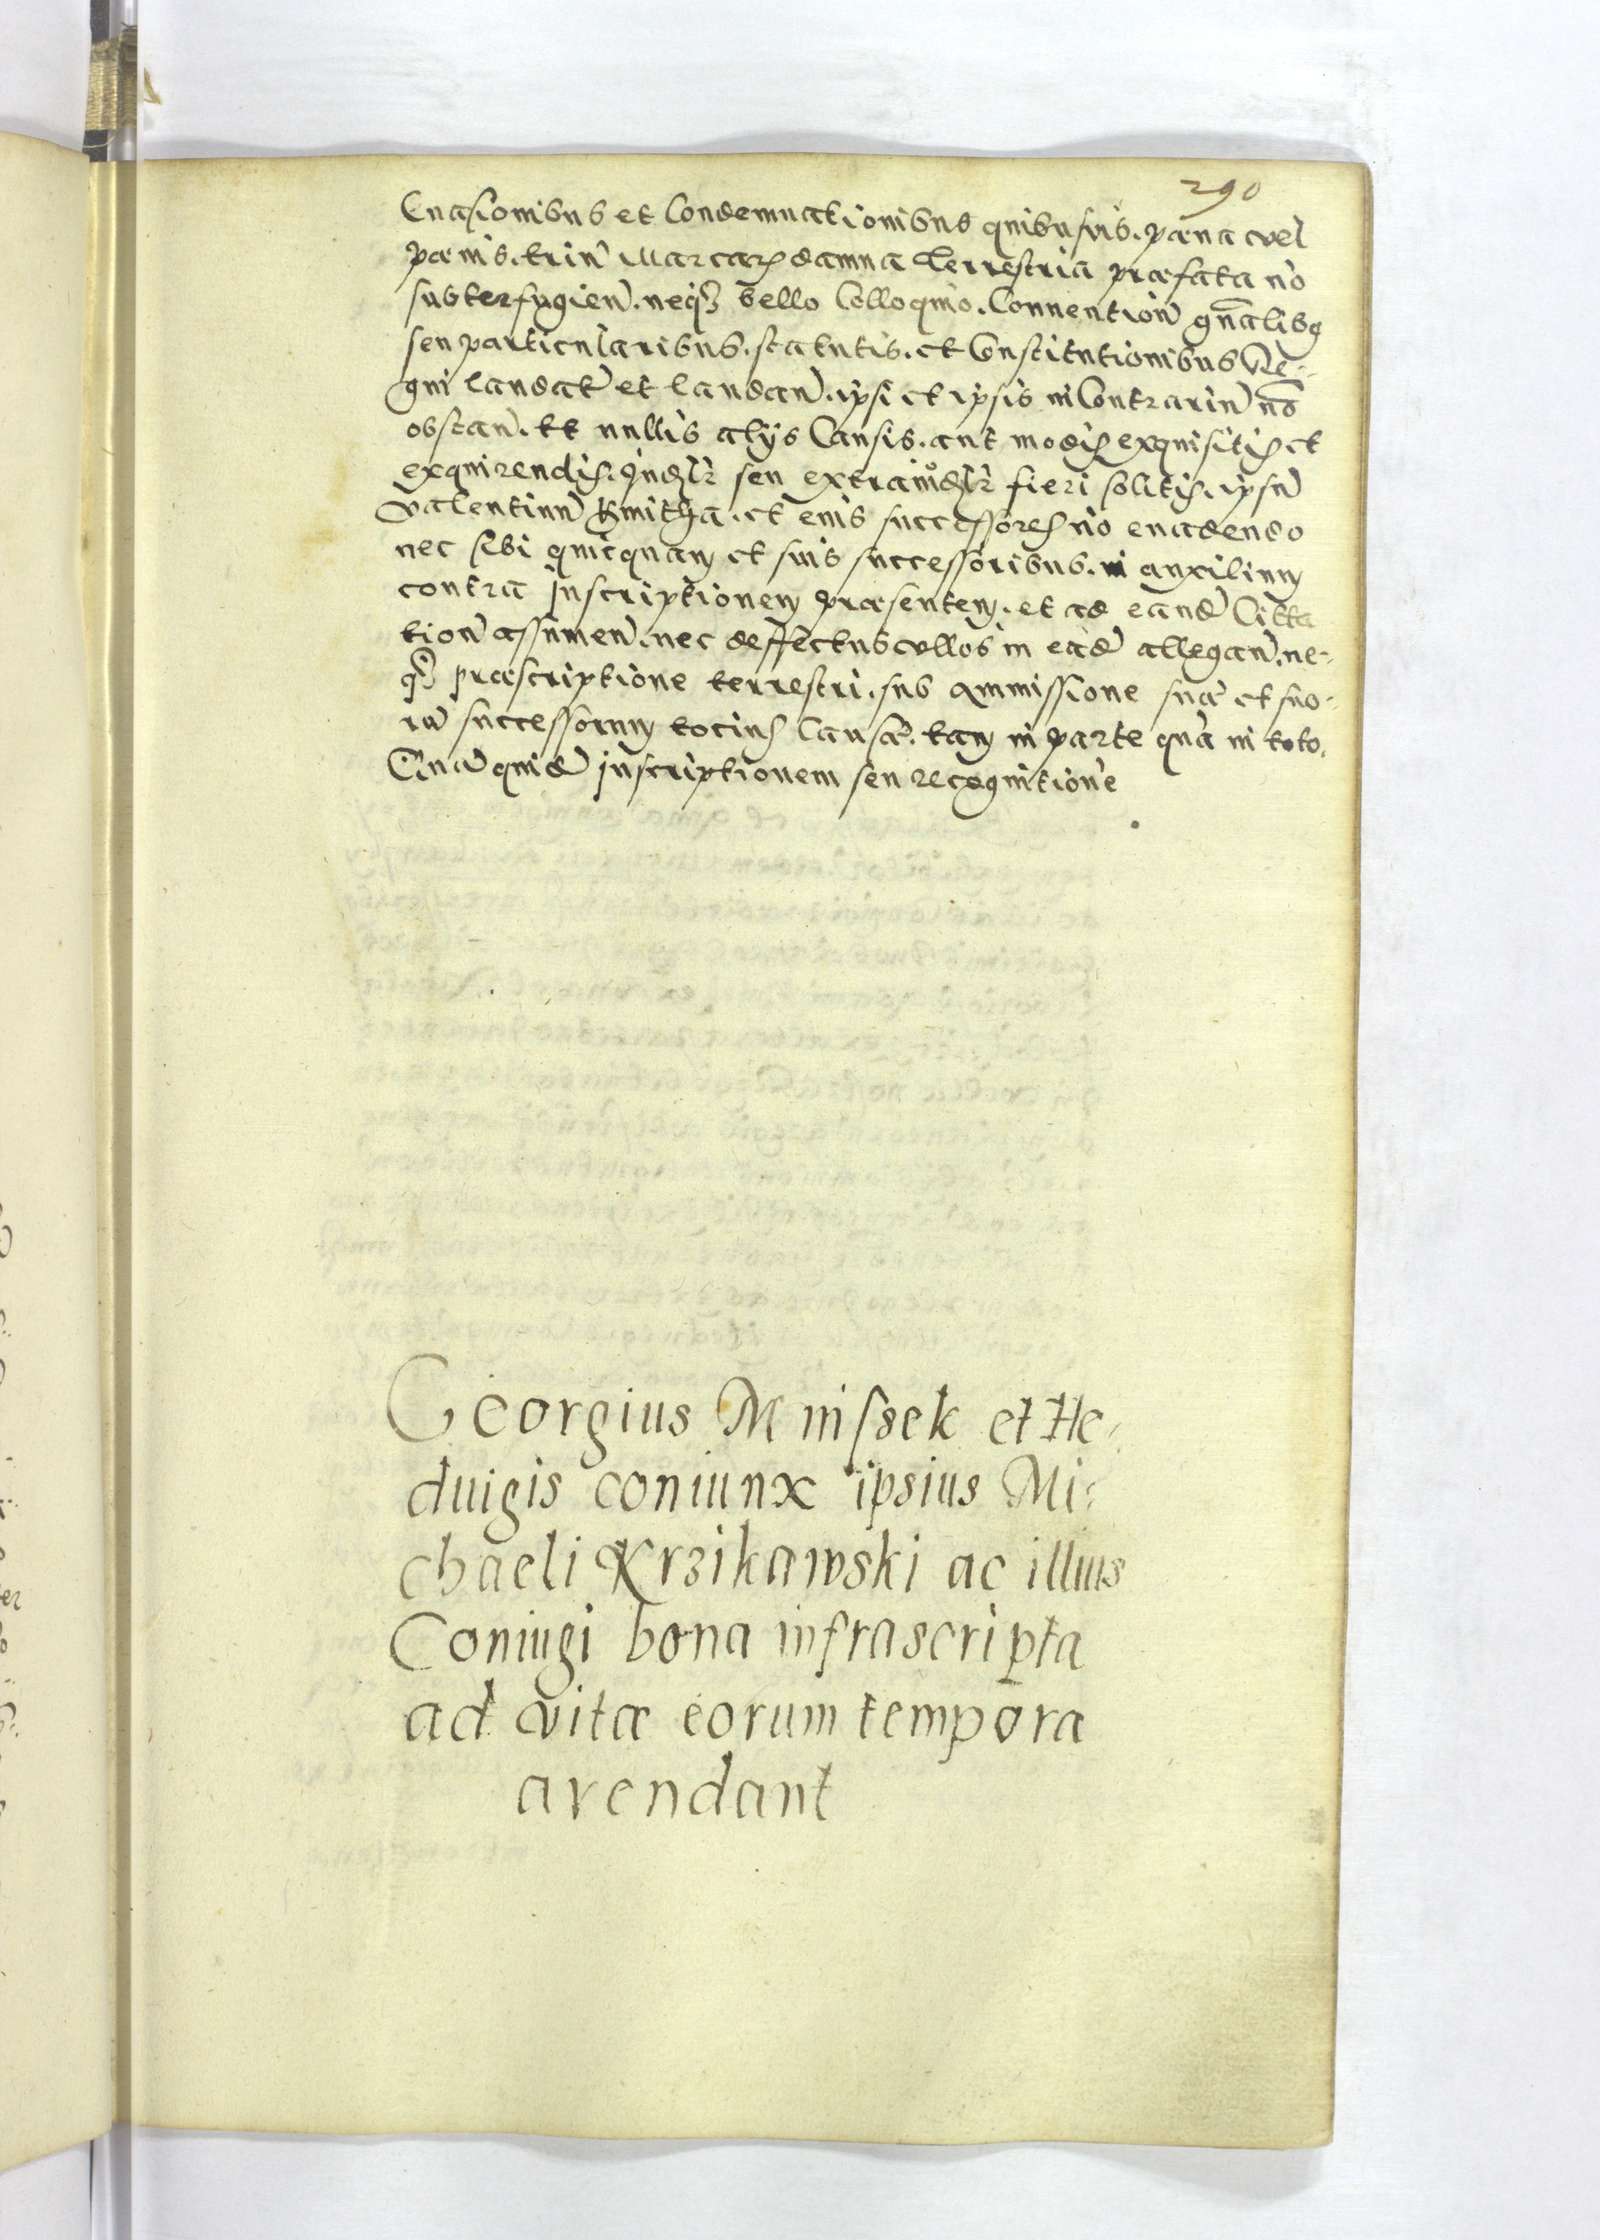 290
Euasionibus et Condemnationibus quibusuis. pæna vel
pænis. trinis Marcarum damna terrestria præfata no
subterfugien. neqз bello Colloquio. Conuention gnalibus
seu particularibus. statutis. et Constitutionibus Re-
gni laudat et laudan. ipsi et ipsis in Contrariu no
obstan. Et nullis alijs Causis. aut modis exquisitis et
exquirendis. seu fieri solitis. ipsu
Valentinu Kmitha. et eius successores no euadendo
nec sibi quicquam et suis successoribus. in auxilium
contra Inscriptionem præsentem. et ad eand Citta
tion assumen. nec deffectus vllos in ead allegan. ne-
qз præscriptione terrestri. sub ammissione sua et suo-
ru successorum tocius Causæ. tam in parte qua in toto.
Qua quid Inscriptionem seu recognitione
Georgius Mnissek et He-
duigis coniunx ipsius Mi-
chaeli Krzikawski ac illius
Coniugi bona infrascripta
ad vitæ eorum tempora
arendant